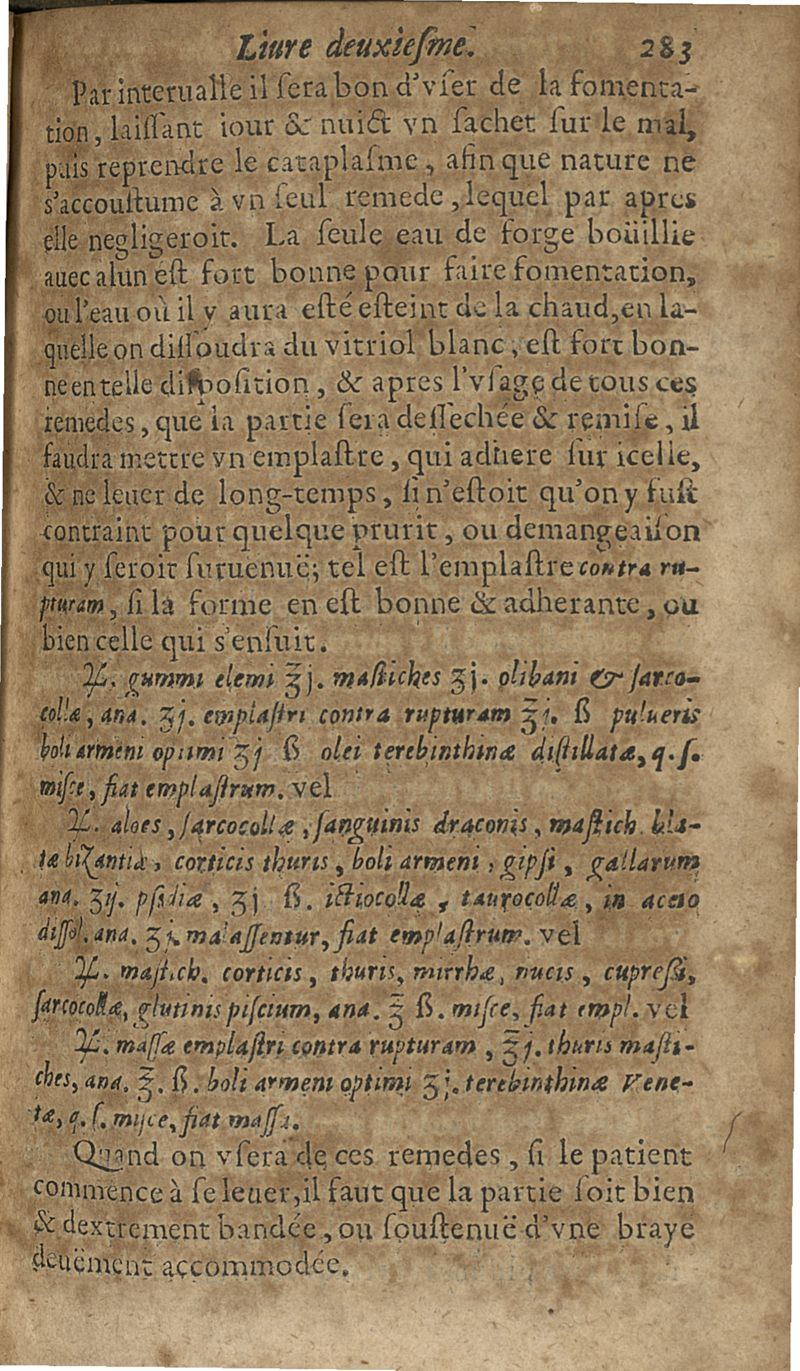 Liure deuxieſme. 283
Par interualle il ſera bon d'vſer de la fomenta-
tion, laiſſant iour & nuict vn ſachet ſur le mal,
puis reprendre le cataplaſme, afin que nature ne
s'accouſtume à vn ſeul remede, lequel par apres
elle negligeroit. La ſeule eau de forge boüillie
auec alun eſt fort bonne pour faire fomentation,
ou l'eau où il y aura eſté eſteint de la chaud, en la-
quelle on diſſoudra du vitriol blanc, eſt fort bon-
ne en telle diſpoſition, & apres l'vſage de tous ces
remedes, que la partie ſera deſſechée & remiſe, il
faudra mettre vn emplaſtre, qui adhere ſur icelle,
& ne leuer de long-temps, ſi n'eſtoit qu'on y fuſt
contraint pour quelque prurit, ou demangeaiſon
qui y ſeroit ſuruenuë; tel eſt l'emplaſtre contra ru-
pturam, ſi la forme en eſt bonne & adherante, ou
bien celle qui s'enſuit.
℞. gummi elemi ℥j. maſtiches ʒj. olibani & ſarco-
collæ, ana. ʒj. emplaſtri contra rupturam ℥j. ß pulueris
boli armeni optimi ʒj ß olei terebinthinæ diſtillatæ, q. ſ.
miſce, fiat emplaſtrum. vel
℞. aloes, ſarcocollæ, ſanguinis draconis, maſtich. bla-
tæ biZantiæ, corticis thuris, boli armeni, gipſi, gallarum
ana. ʒij. pſidiæ, ʒj ß. ictiocollæ, taurocollæ, in aceto
diſſol. ana. ʒj. malaſſentur, fiat emplaſtrum. vel
℞. maſtich. corticis, thuris, mirrhæ, nucis, cupreſſi,
ſarcocollæ, glutinis piſcium, ana. ℥ ß. miſce, fiat empl. vel
℞. maſſæ emplaſtri contra rupturam, ℥j. thuris maſti-
ches, ana. ℥. ß. boli armeni optimi ʒj. terebinthinæ Vene-
tæ, q. ſ. miſce, fiat maſſa.
Quand on vſera de ces remedes, ſi le patient
commence à ſe leuer, il faut que la partie ſoit bien
& dextrement bandée, ou ſouſtenuë d'vne braye
deuëment accommodée.